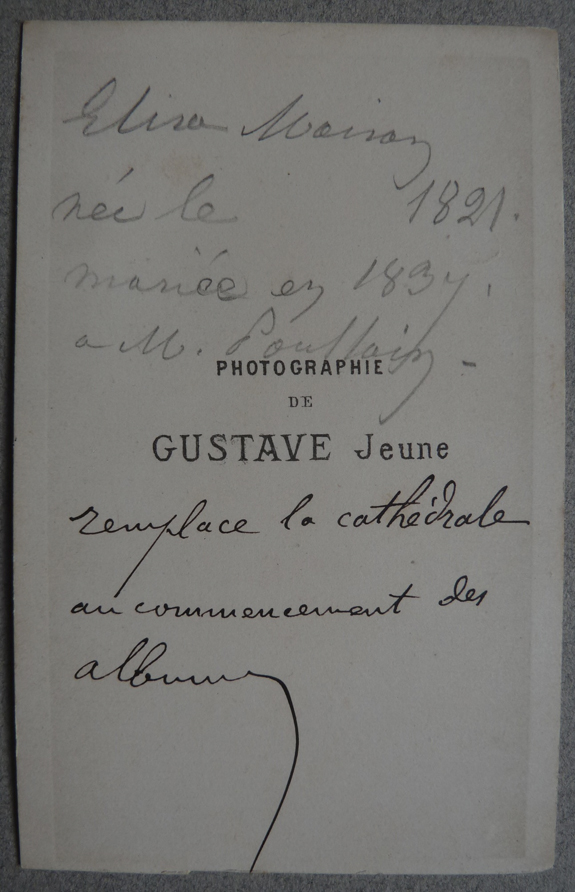 Elisa Maison
née le 1821.
mariée en 1837.
a M. Poullain -
PHOTOGRAPHIE
DE
GUSTAVE Jeune
remplace la cathédrale
au commencement des
albums